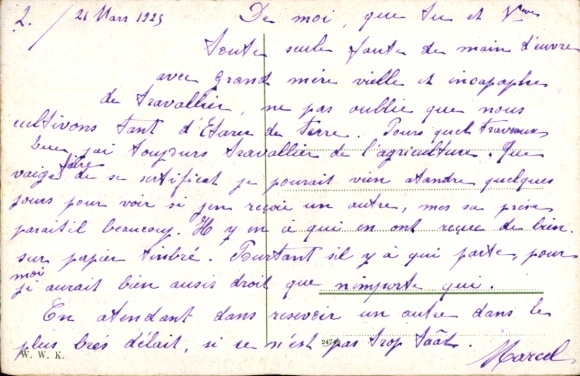 2. / 21 Mars 1925 De moi, que tu et Vve
toute seule faute de main d'euvre
avec grand mère vielle et incapaphe
de travallier, ne pas oublié que nous
cultivons tant d'Etares de Terre. Pours quel travaux
bien j'ai toujours travallier de l'agriculture. Que
vaige faire de se sertificat je pourait vien atandre quelques
jours pour voir si jen reçoie un autre, mes sa prèse
parait il beaucoup. Il y en à qui en ont reçue de bien
sur papier timbré. Pourtant s'il y à qui parte pour
moi
j'i aurait bien ausis droit que n'importe qui.
En atendant dans resevoir un autre dans le
plus brès délait, si se n'est pas trop taât.
W. W. K. 2474 Marcel